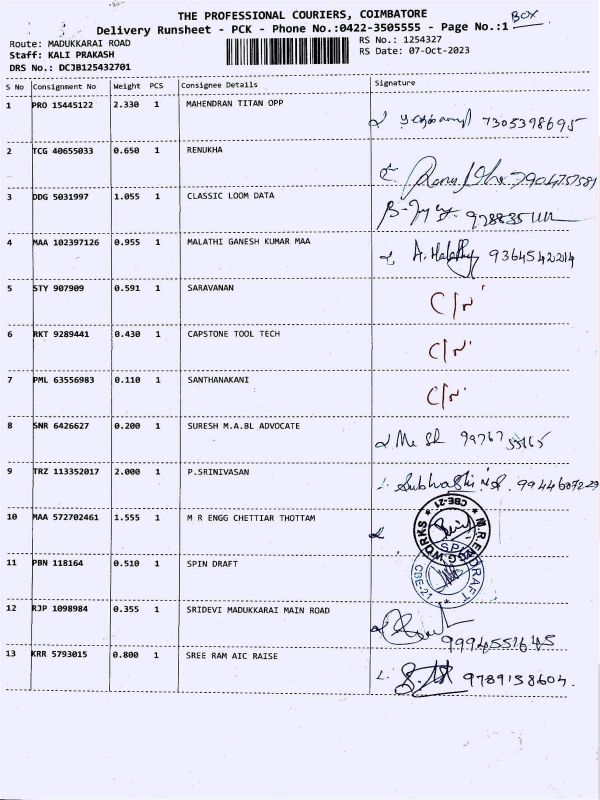 THE PROFESSIONAL COURIERS, COIMBATORE
BOX
Delivery Runsheet - PCK - Phone No.:0422-3505555 - Page No.:1
Route: MADUKKARAI ROAD
RS No.: 1254327
Staff: KALI PRAKASH
RS Date: 07-Oct-2023
DRS No.: DCJB125432701
S No Consignment No Weight PCS Consignee Details Signature
1 PRO 15445122 2.330 1 MAHENDRAN TITAN OPP 7305398695
2 TCG 40655033 0.650 1 RENUKHA
3 DDG 5031997 1.055 1 CLASSIC LOOM DATA
4 MAA 102397126 0.955 1 MALATHI GANESH KUMAR MAA A. Malathy 9364542214
5 STY 907909 0.591 1 SARAVANAN
6 RKT 9289441 0.430 1 CAPSTONE TOOL TECH
7 PML 63556983 0.110 1 SANTHANAKANI
8 SNR 6426627 0.200 1 SURESH M.A.BL ADVOCATE
9 TRZ 113352017 2.000 1 P.SRINIVASAN
10 MAA 572702461 1.555 1 M R ENGG CHETTIAR THOTTAM
M.R.ENGG WORKS CBE-21
11 PBN 118164 0.510 1 SPIN DRAFT
SPIN DRAFT CBE-21
12 RJP 1098984 0.355 1 SRIDEVI MADUKKARAI MAIN ROAD
9994551645
13 KRR 5793015 0.800 1 SREE RAM AIC RAISE 9789158604